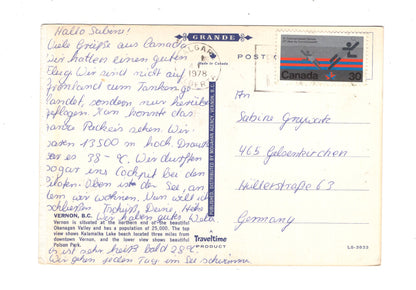 Hallo Sabine!
Viele Grüße aus Canada
Wir hatten einen guten
Flug. Wir sind nicht auf
Grönland zum Tanken ge
landet, sondern nur herüber
geflogen. Man konnte das
ganze Packeis sehen. Wir
waren 13500 m hoch. Drauß
en 38 -°C. Wir durften
sogar ins Cockpit bei den
Piloten. Oben ist der See, an
dem wir wohnen. Nun will ich
schließen. Tschüß, Deine
Wir haben gutes Wetter
Es ist sehr heiß bald 28°C
Wir gehen jeden Tag im See schwimmen
GRANDE
Made in Canada
1978
POSTC
Canada 30
An
Sabine
465 Gelsenkirchen
Hüllerstraße 63
Germany
PUBLISHED, DISTRIBUTED BY NATIONAL AGENCY, VERNON, B.C.
VERNON, B.C.
Vernon is situated at the northern end of the beautiful
Okanagan Valley and has a population of 25,000. The top
view shows Kalamalka Lake beach located three miles from
downtown Vernon, and the lower view shows beautiful
Polson Park.
Traveltime
PRODUCT